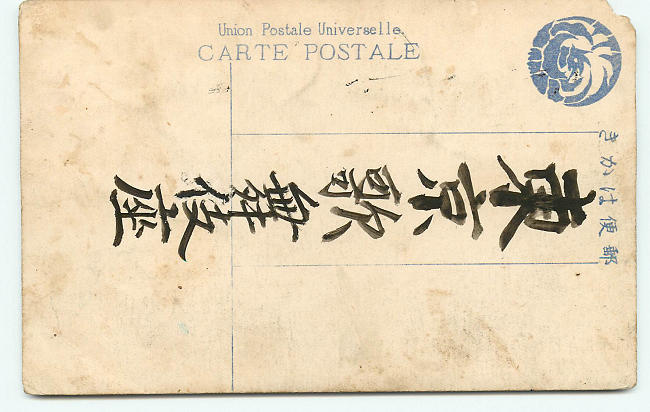 Union Postale Universelle.
CARTE POSTALE
郵便はかき
東京歌舞伎座